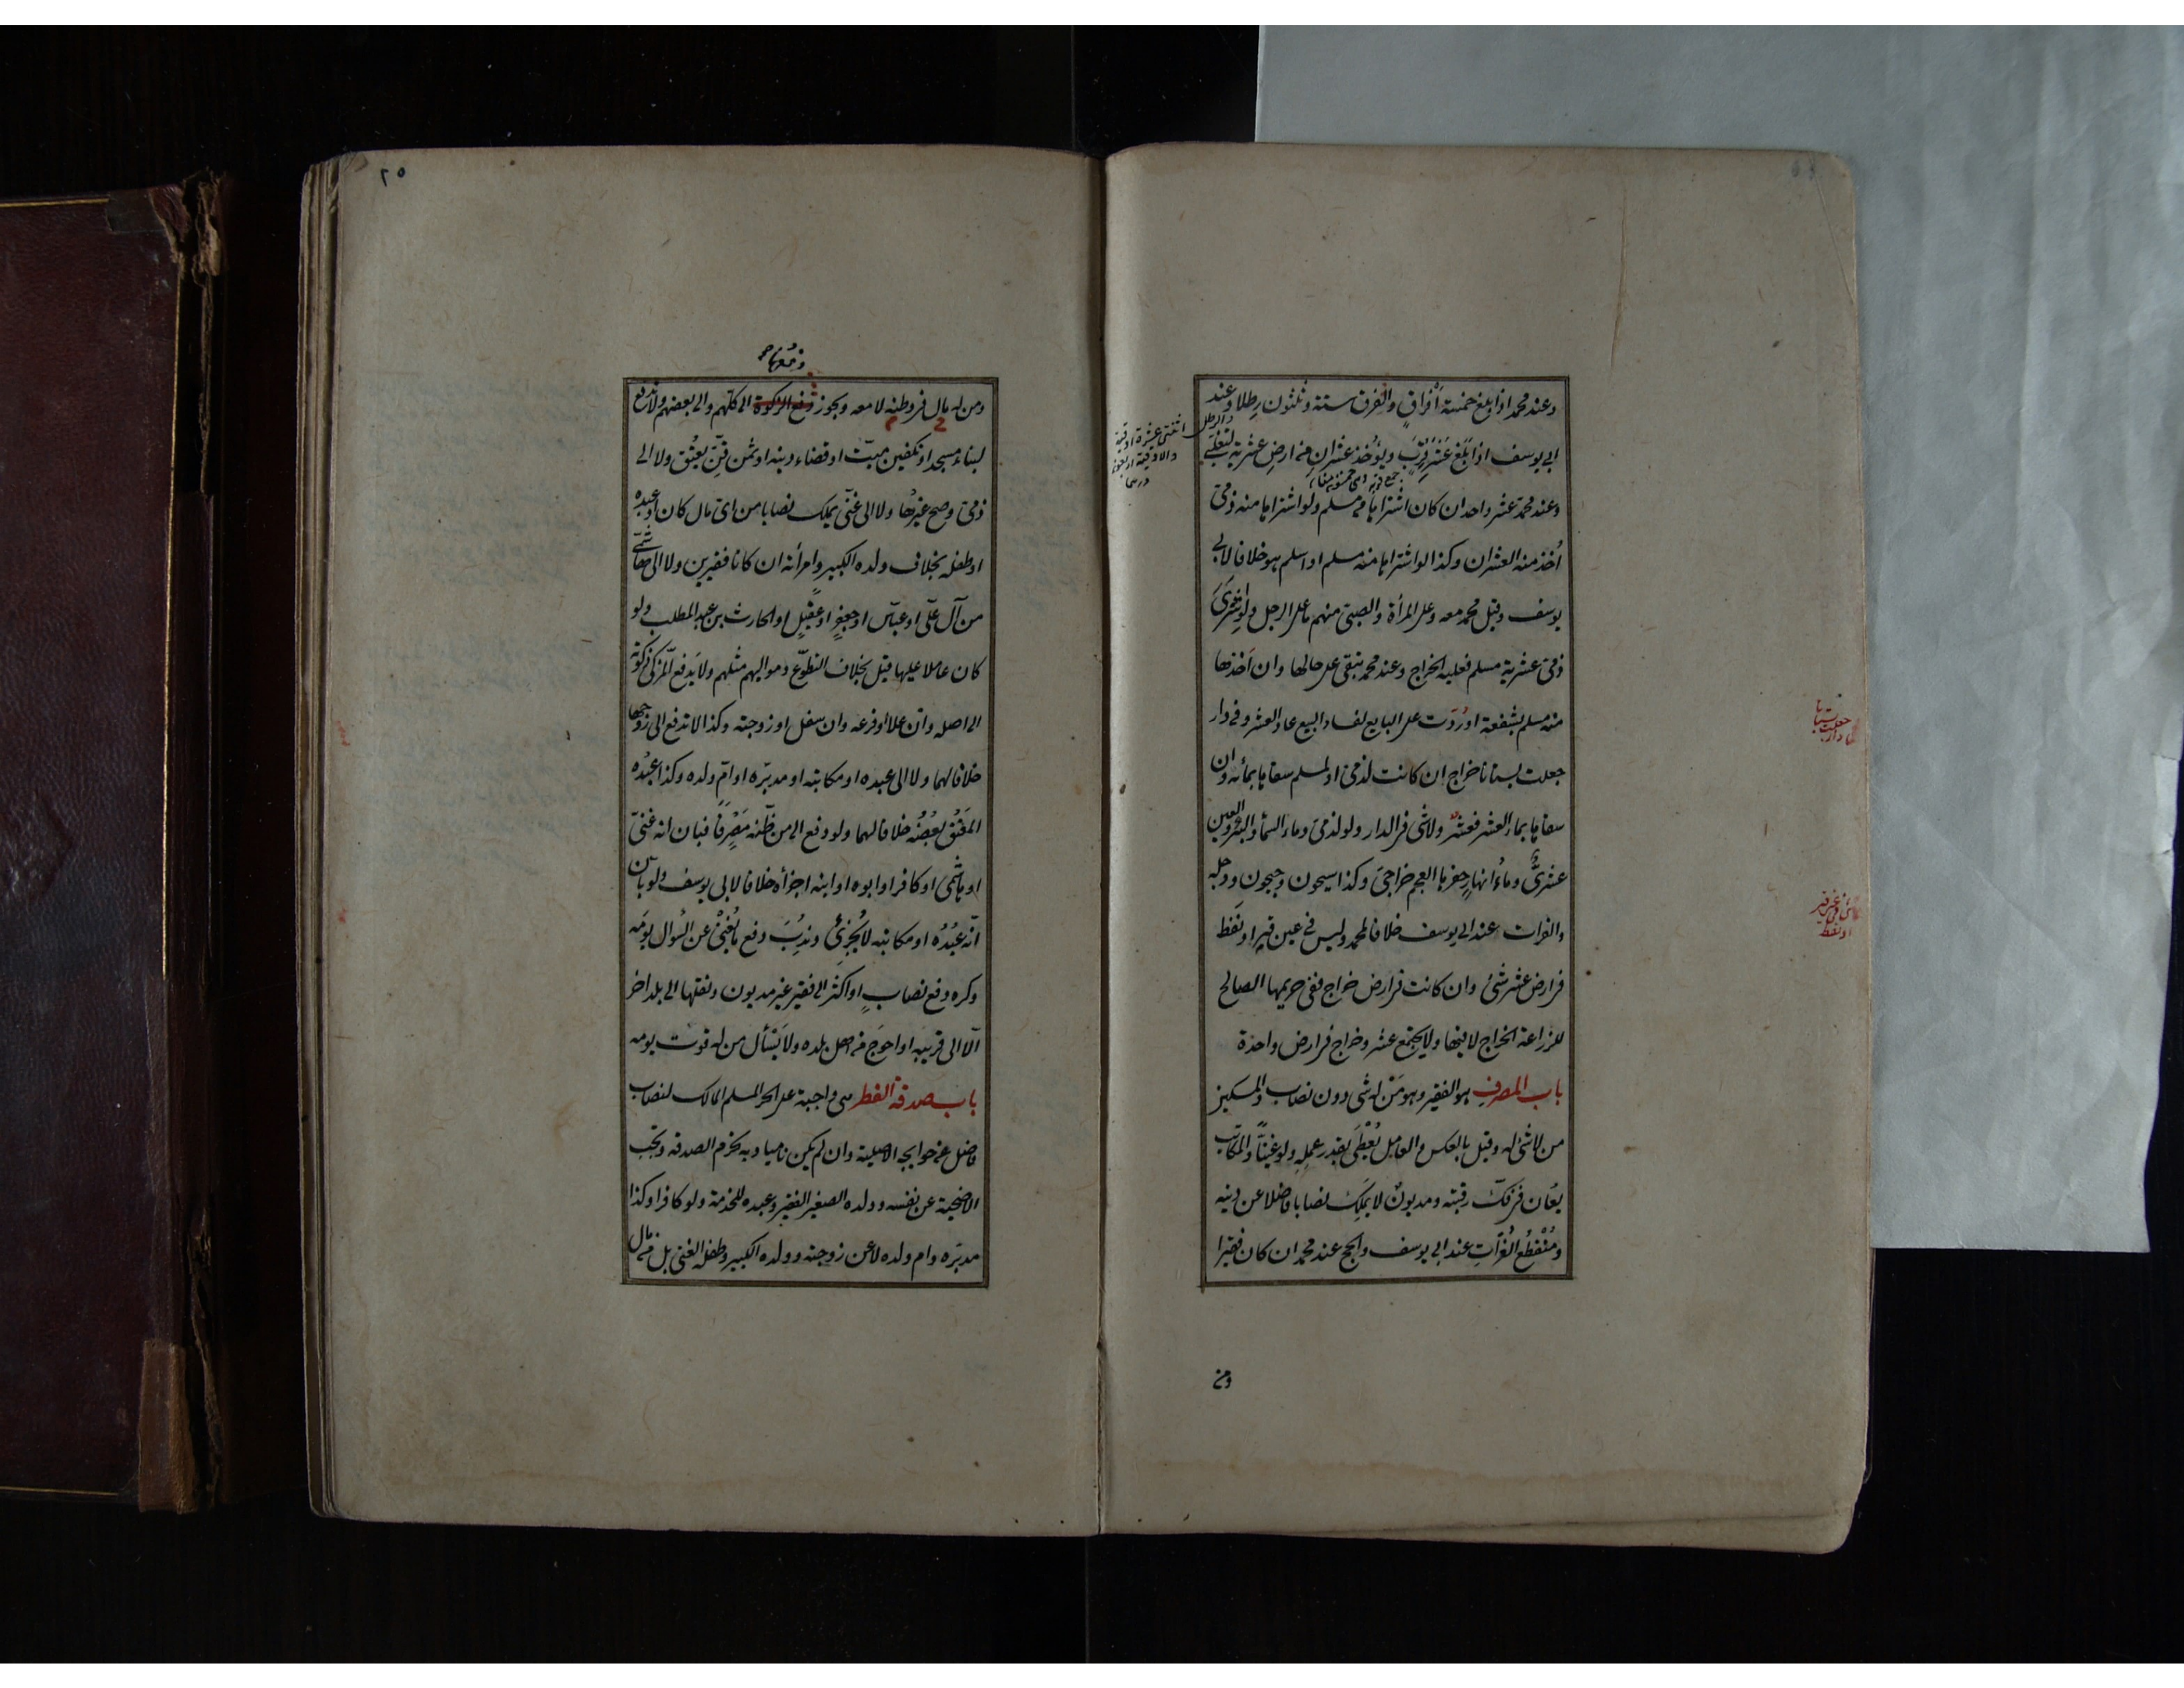 وعند محمد اذا بلغ خمسة أفراقٍ والفرق ستة وثلثون رطلا وعند
ابى يوسف اذا بلغ عشر قِرَبٍ ويؤخذ عشران من ارض عشرية لتغلبى
وعند محمد عشر واحد ان كان اشتراها من مسلم ولو اشتراها منه ذمى
اُخذ منه العشران وكذا لو اشتراها منه مسلم او اسلم هو خلافا لابى
يوسف وقيل محمد معه وعلى المرأة والصبى منهم ما على الرجل ولو اشترى
ذمى عشرية مسلم فعليه الخراج وعند محمد تبقى على حالها وان أخذها
منه مسلم بشفعة او رُدّت على البايع لفساد البيع عاد العشر وفى دار
جعلت بستانا خراج ان كانت لذمى او لمسلم سقاها بمائه وان
سقاها بماء العشر فعشر ولا شئ فى الدار ولو لذمى وماء السماء والبئر والعين
عشرىٌّ وماء انهارٍ حفرها العجم خراجى وكذا سيحون وجيحون ودجلة
والفرات عند ابى يوسف خلافا لمحمد وليس فى عين قيرٍ او نفط
فى ارض عشر شئ وان كانت فى ارض خراج ففى حريمها الصالح
للزراعة الخراج لا فيها ولا يجتمع عشر وخراج فى ارض واحدة
باب المصرف هو الفقير وهو مَن له شئ دون نصاب والمسكين
من لا شئ له وقيل بالعكس والعامل يُعْطَى بقدر عمله ولو غنيّاً والمكاتب
يعان فى فكّ رقبته ومديونٌ لا يملك نصابا فاضلا عن دينه
ومُنْقَطع الغُزاتِ عند ابى يوسف والحج عند محمد ان كان فقيرا
والرطل اثنتى عشرة اوقية
والاوقية اربعون
درهما
جعلت بستانا
دار
فى عين قير
او نفط
ومن
٢٥
دفعها صح
ومن له مال فى وطنه لا معه ويجوز دفع الزكوة الى كلهم والى بعضهم ولا تدفع
لبناء مسجد او تكفين ميت او قضاء دينه او ثمن قنّ يعتق ولا الى
ذمى وصح غيرها ولا الى غنى يملك نصابا من اى مال كان او عبده
او طفله بخلاف ولده الكبير وامرأته ان كانا فقيرين ولا الى هاشمى
من آل علىّ او عباس او جعفرٍ او عقيلٍ او الحارث بن عبد المطلب ولو
كان عاملا عليها قيل بخلاف التطوّع ومواليهم مثلهم ولا يدفع المزكى زكوته
الى اصله وان علا او فرعه وان سفل او زوجته وكذا لا تدفع الى زوجها
خلافا لهما ولا الى عبده او مكاتبه او مدبّره او امّ ولده وكذا عبْدُه
المعتَق بعْضُه خلافا لهما ولو دفع الى من ظنّه مَصْرِفاً فبان انه غنىّ
او هاشمى او كافر او ابوه او ابنه اجزأه خلافا لابى يوسف ولو بان
انّه عبْدُه او مكاتبه لا يُجْزِئُ ونُدِبَ دفع ما يُغْنى عن السؤال يومه
وكره دفع نصابٍ او اكثر الى فقير غير مديون ونقلها الى بلد اخر
الّا الى قريبه او احوج من اهل بلده ولا يَسْأل من له قوت يومه
باب صدقة الفطر هى واجبة على الحر المسلم المالك لنصاب
فاضل عن حوايجه الاصلية وان لم يكن ناميا وبه تحرم الصدقة وتجب
الاضحية عن نفسه وولده الصغير الفقير وعبده للخدمة ولو كافرا وكذا
مدبّره وام ولده لا عن زوجته وولده الكبير وطفله الغنى بل من مال